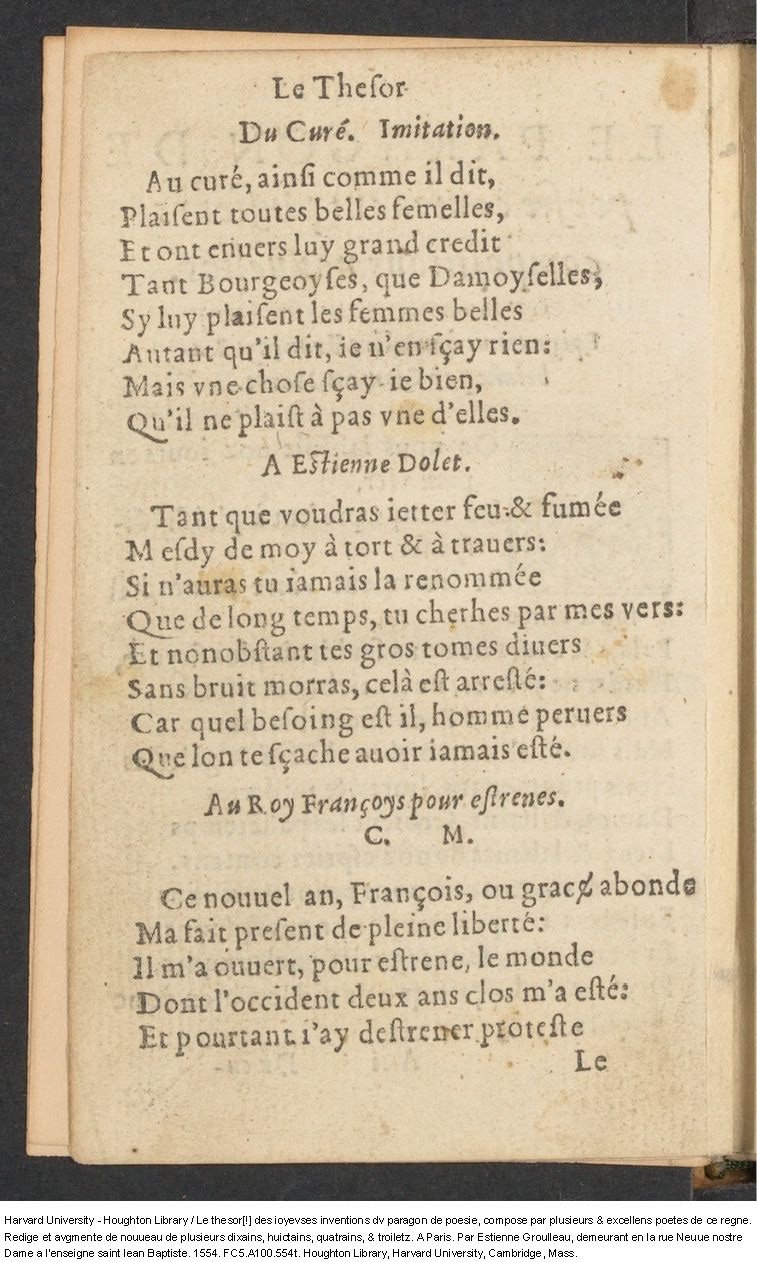 Le Theſor
Du Curé. Imitation.
Au curé, ainſi comme il dit,
Plaiſent toutes belles femelles,
Et ont enuers luy grand credit
Tant Bourgeoyſes, que Damoyſelles,
Sy luy plaiſent les femmes belles
Autant qu'il dit, ie n'en ſçay rien:
Mais vne choſe ſçay-ie bien,
Qu'il ne plaiſt à pas vne d'elles.
A Eſtienne Dolet.
Tant que voudras ietter feu & fumée
Meſdy de moy à tort & à trauers:
Si n'auras tu iamais la renommée
Que de long temps, tu cherhes par mes vers:
Et nonobſtant tes gros tomes diuers
Sans bruit morras, celà eſt arreſté:
Car quel beſoing eſt il, homme peruers
Que lon te ſçache auoir iamais eſté.
Au Roy Françoys pour eſtrenes.
C. M.
Ce nouuel an, François, ou grac abonde
Ma fait preſent de pleine liberté:
Il m'a ouuert, pour eſtrene, le monde
Dont l'occident deux ans clos m'a eſté:
Et pourtant i'ay deſtrener proteſte
Le
Harvard University - Houghton Library / Le thesor[!] des ioyevses inventions dv paragon de poesie, compose par plusieurs & excellens poetes de ce regne.
Redige et avgmente de nouueau de plusieurs dixains, huictains, quatrains, & troiletz. A Paris. Par Estienne Groulleau, demeurant en la rue Neuue nostre
Dame a l'enseigne saint Iean Baptiste. 1554. FC5.A100.554t. Houghton Library, Harvard University, Cambridge, Mass.